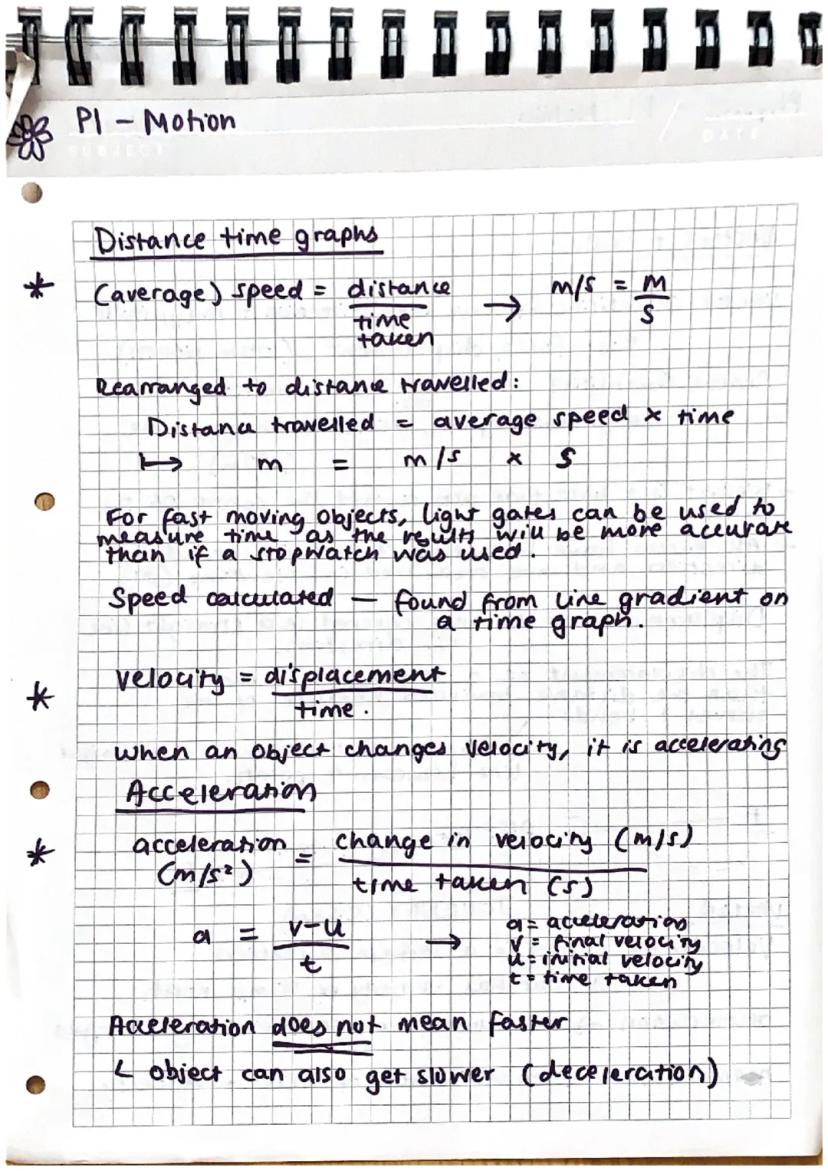 P1 - Motion
SUBJECT
DATE
Distance time graphs
* (average) speed = distance / time taken → m/s = m / s
Rearranged to distance travelled:
Distance travelled = average speed x time
↦ m = m/s x s
For fast moving objects, light gates can be used to
measure time as the results will be more accurate
than if a stopwatch was used.
Speed calculated — found from line gradient on
a time graph.
* velocity = displacement / time.
when an object changes velocity, it is accelerating
Acceleration
* acceleration (m/s²) = change in velocity (m/s) / time taken (s)
a = v-u / t →
a = acceleration
v = final velocity
u = initial velocity
t = time taken
Acceleration does not mean faster
└ object can also get slower (deceleration)